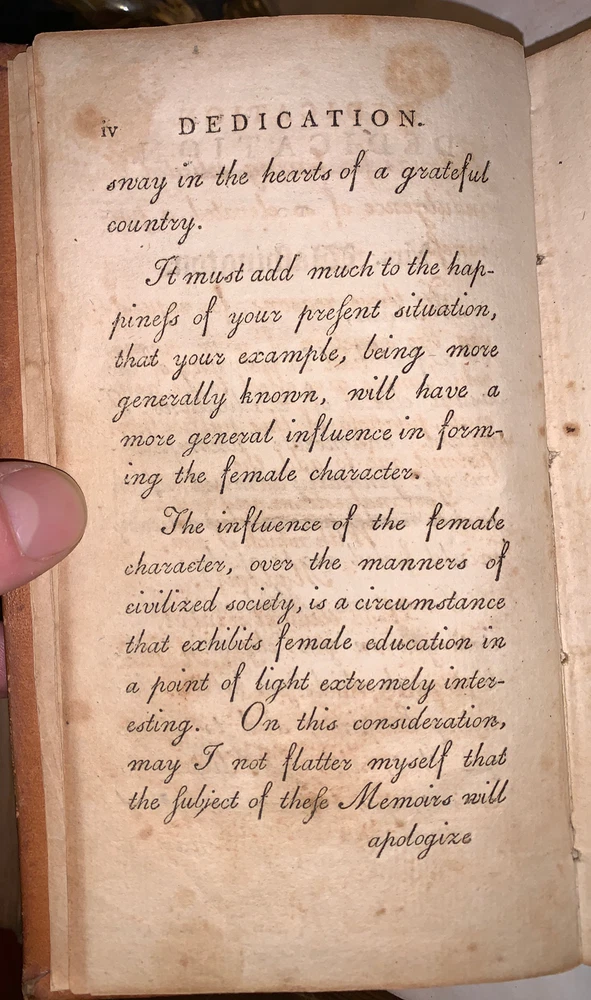 iv DEDICATION.
sway in the hearts of a grateful
country.
It must add much to the hap-
pineſs of your preſent situation,
that your example, being more
generally known, will have a
more general influence in form-
ing the female character.
The influence of the female
character, over the manners of
civilized society, is a circumstance
that exhibits female education in
a point of light extremely inter-
esting. On this consideration,
may I not flatter myself that
the ſubject of theſe Memoirs will
apologize